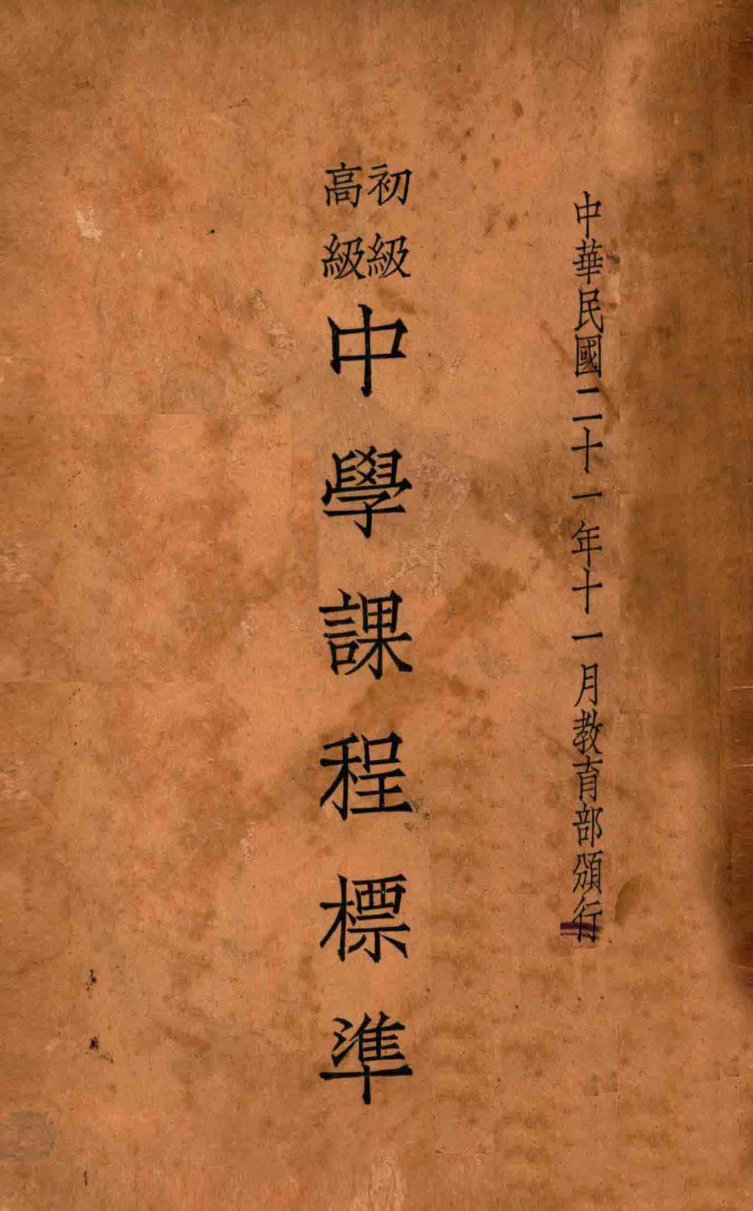 中華民國二十一年十一月教育部頒行
初級
高級
中學課程標準